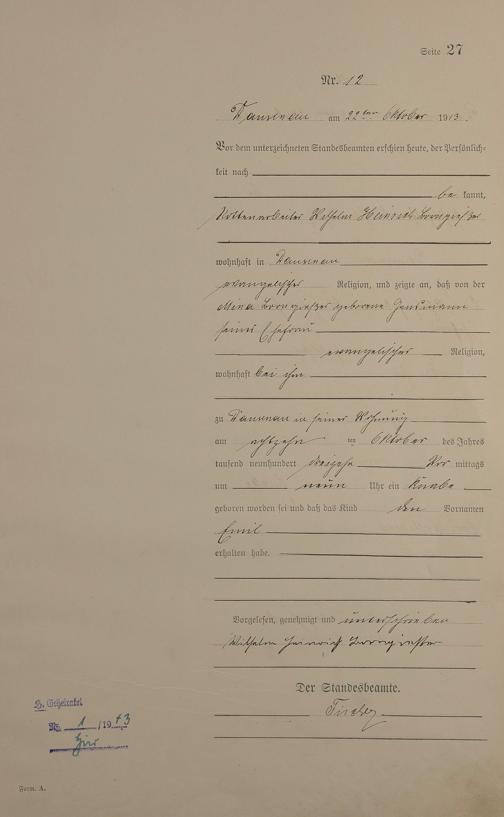 Seite 27
Nr. 12
Dausenau am 22ten Oktober 1913.
Vor dem unterzeichneten Standesbeamten erschien heute, der Persönlich-
keit nach
be kannt,
Rottenarbeiter Wilhelm Heinrich
wohnhaft in Dausenau
evangelischer Religion, und zeigte an, daß von der
Mina geborene
seiner Ehefrau
evangelischer Religion,
wohnhaft bei ihm
zu Dausenau in seiner Wohnung
am achtzehn ten Oktober des Jahres
tausend neunhundert dreizehn Vor mittags
um neun Uhr ein Knabe
geboren worden sei und daß das Kind den Vornamen
Emil
erhalten habe.
Vorgelesen, genehmigt und unterschrieben
Wilhelm Heinrich
Der Standesbeamte.
H. Geheiratet
Nr. 1 /1943
hier
Form. A.